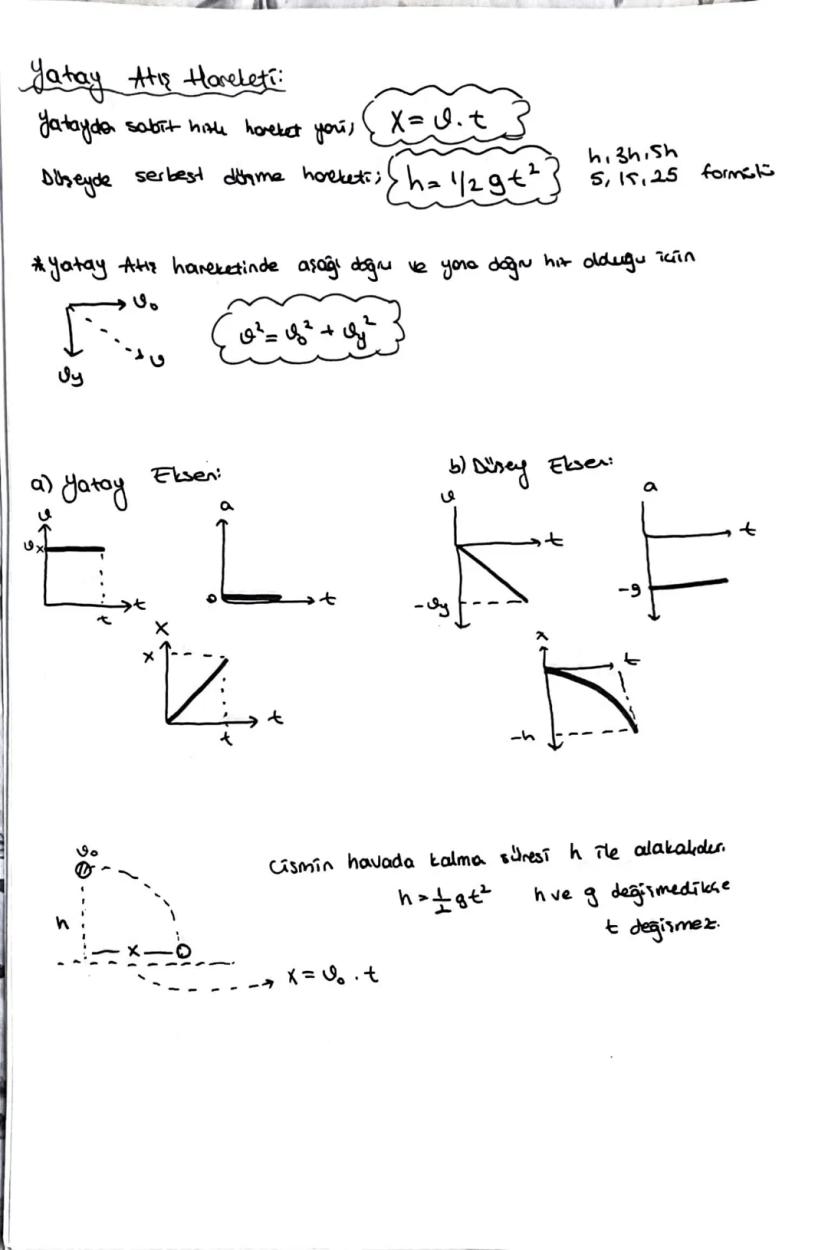 Yatay Atış Hareketi:
Yatayda sabit hızlı hareket yani; X = ϑ.t
Düşeyde serbest düşme hareketi; h = 1/2 gt²
h, 3h, 5h
5, 15, 25 formülü
*Yatay Atış hareketinde aşağı doğru ve yana doğru hız olduğu için
ϑ₀
ϑ
ϑy
ϑ² = ϑ₀² + ϑy²
a) Yatay Eksen:
ϑ
ϑx
t
t
a
0
t
X
x
t
t
b) Düşey Eksen:
ϑ
t
-ϑy
a
t
-g
x
t
-h
ϑ₀
h
x
X = ϑ₀ . t
Cismin havada kalma süresi h ile alakalıdır.
h = 1/2 gt² h ve g değişmedikçe
t değişmez.